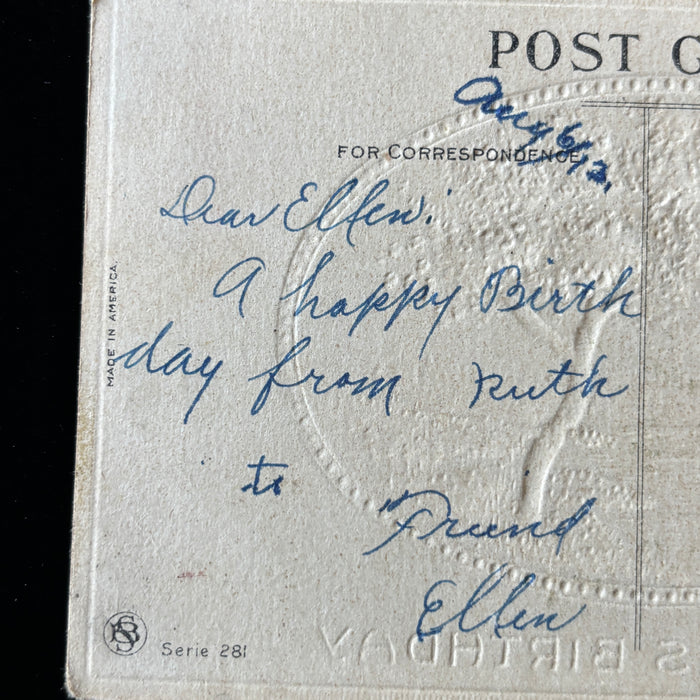 POST C
Aug 6/12.
FOR CORRESPONDENCE
Dear Ellen:
A happy Birth
day from Ruth
to
Friend
Ellen
MADE IN AMERICA.
KSB
Serie 281
S BIRTHDAY